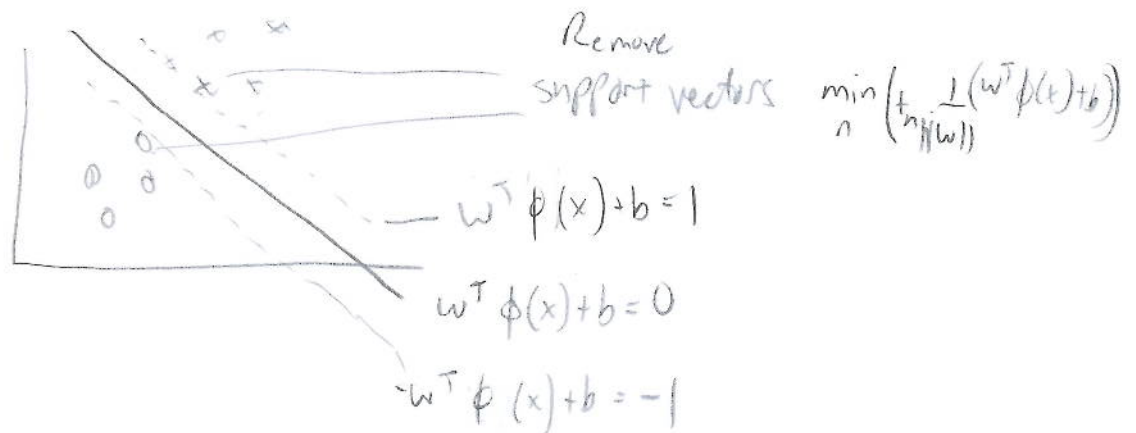 Remove
support vectors
min n (t_n 1/||w|| (w^T ϕ(t)+b))
w^T ϕ(x)+b=1
w^T ϕ(x)+b=0
-w^T ϕ(x)+b=-1